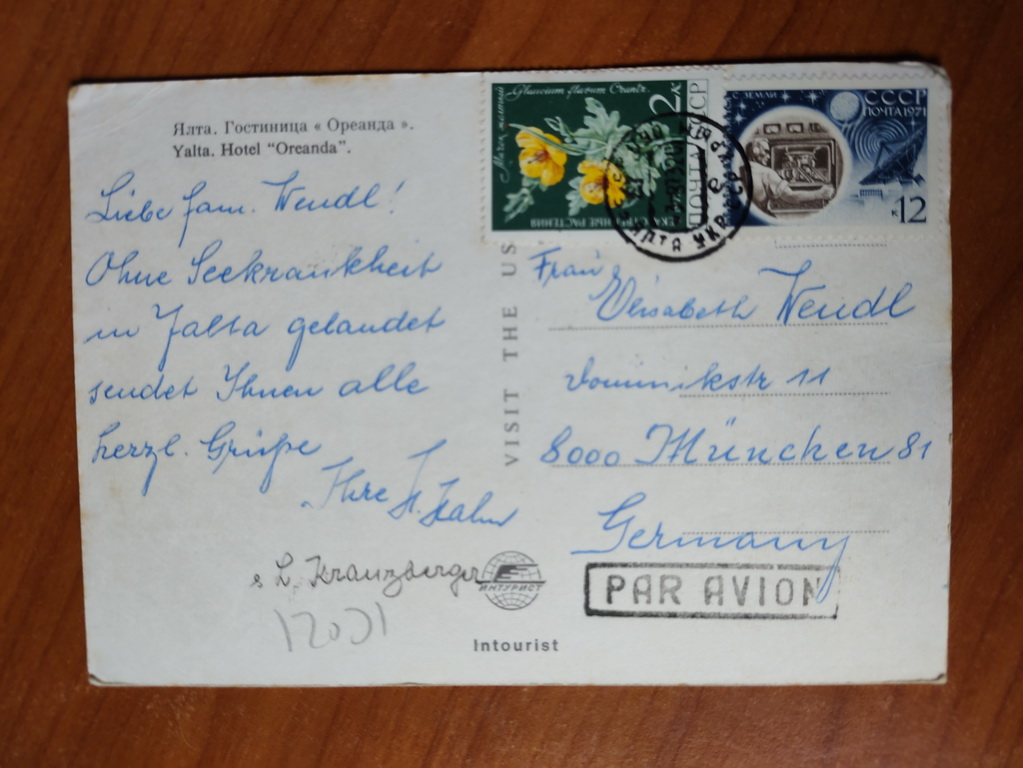 Ялта. Гостиница « Ореанда ».
Yalta. Hotel "Oreanda".
Liebe Fam. Wendl!
Ohne Seekrankheit
in Jalta gelandet
sendet Ihnen alle
herzl. Grüße
Ihre H. Hahn
L. Kranzberger
VISIT THE US
Glaucium flavum Crantz.
2к
ПОЧТА СССР
СССР
ПОЧТА 1971
к 12
ЯЛТА УКР
Frau
Elisabeth Wendl
Dominikstr 11
8000 München 81
Germany
PAR AVION
ИНТУРИСТ
Intourist